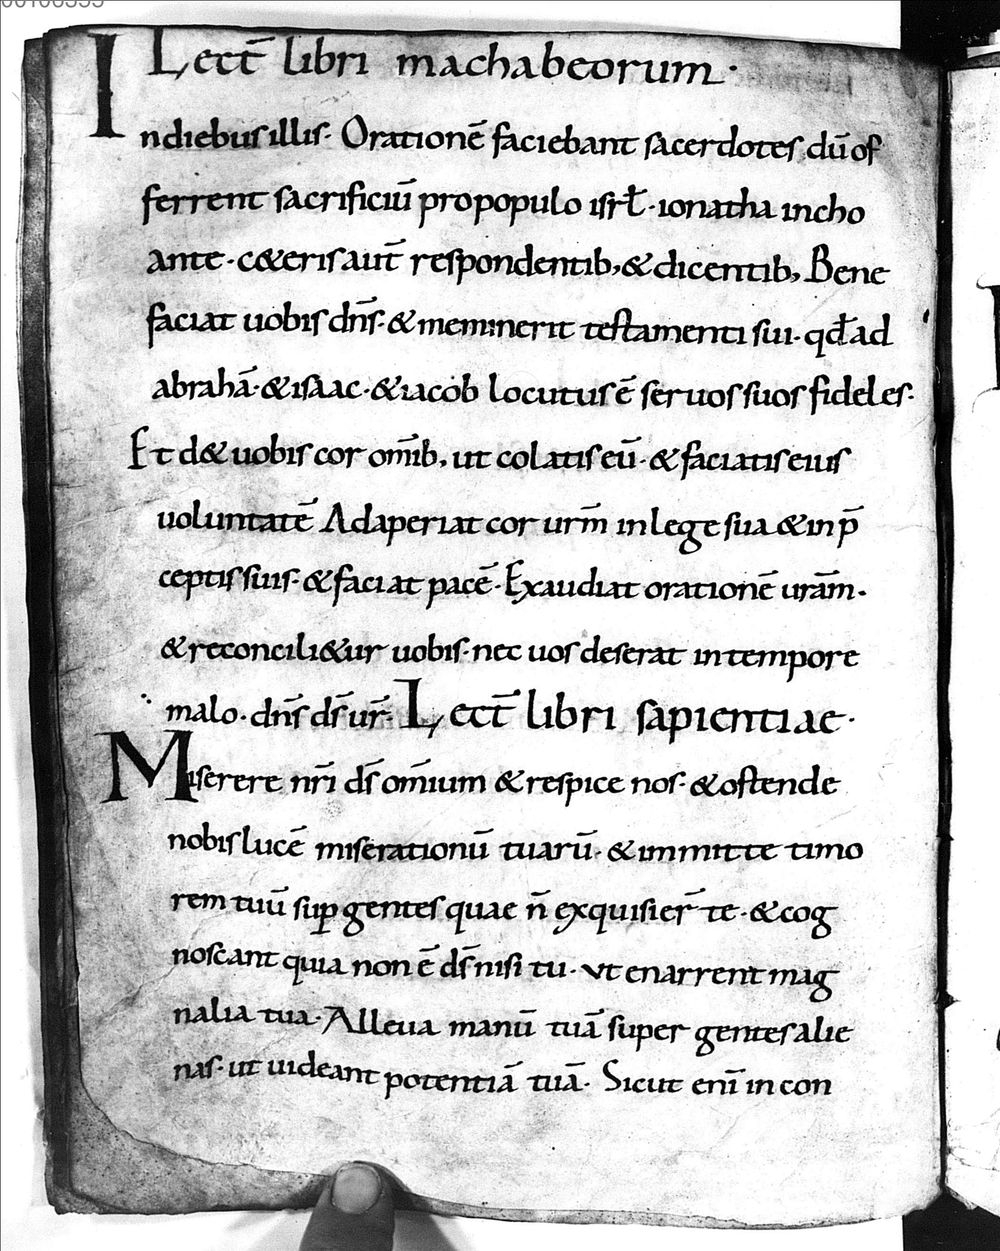 Lect̄ libri machabeorum·
Indiebus illis· Orationē faciebant sacerdotes dū of
ferrent sacrificiū pro populo isrł· ionatha incho
ante· c&eris aut̄ respondentib; & dicentib; Bene
faciat uobis dn̄s· & meminerit testamenti sui· qđ ad
abrahā· & isaac· & iacob locutus ē seruos suos fideles·
Et d& uobis cor om̄ib; ut colatis eū· & faciatis eius
uoluntatē Adaperiat cor ur̄m in lege sua & in p̄
ceptis suis· & faciat pacē· Exaudiat orationē urām·
& reconcili&ur uobis· nec uos deserat in tempore
malo· dn̄s ds̄ ur̄· Lect̄ libri sapientiae·
Miserere nr̄i ds̄ om̄ium & respice nos· & ostende
nobis lucē miserationū tuarū· & immitte timo
rem tuū sup̱ gentes quae n̄ exquisier̄ te· & cog
noscant quia non ē ds̄ nisi tu· ut enarrent mag
nalia tua· Alleua manū tuā super gentes alie
nas· ut uideant potentiā tuā· Sicut enī in con